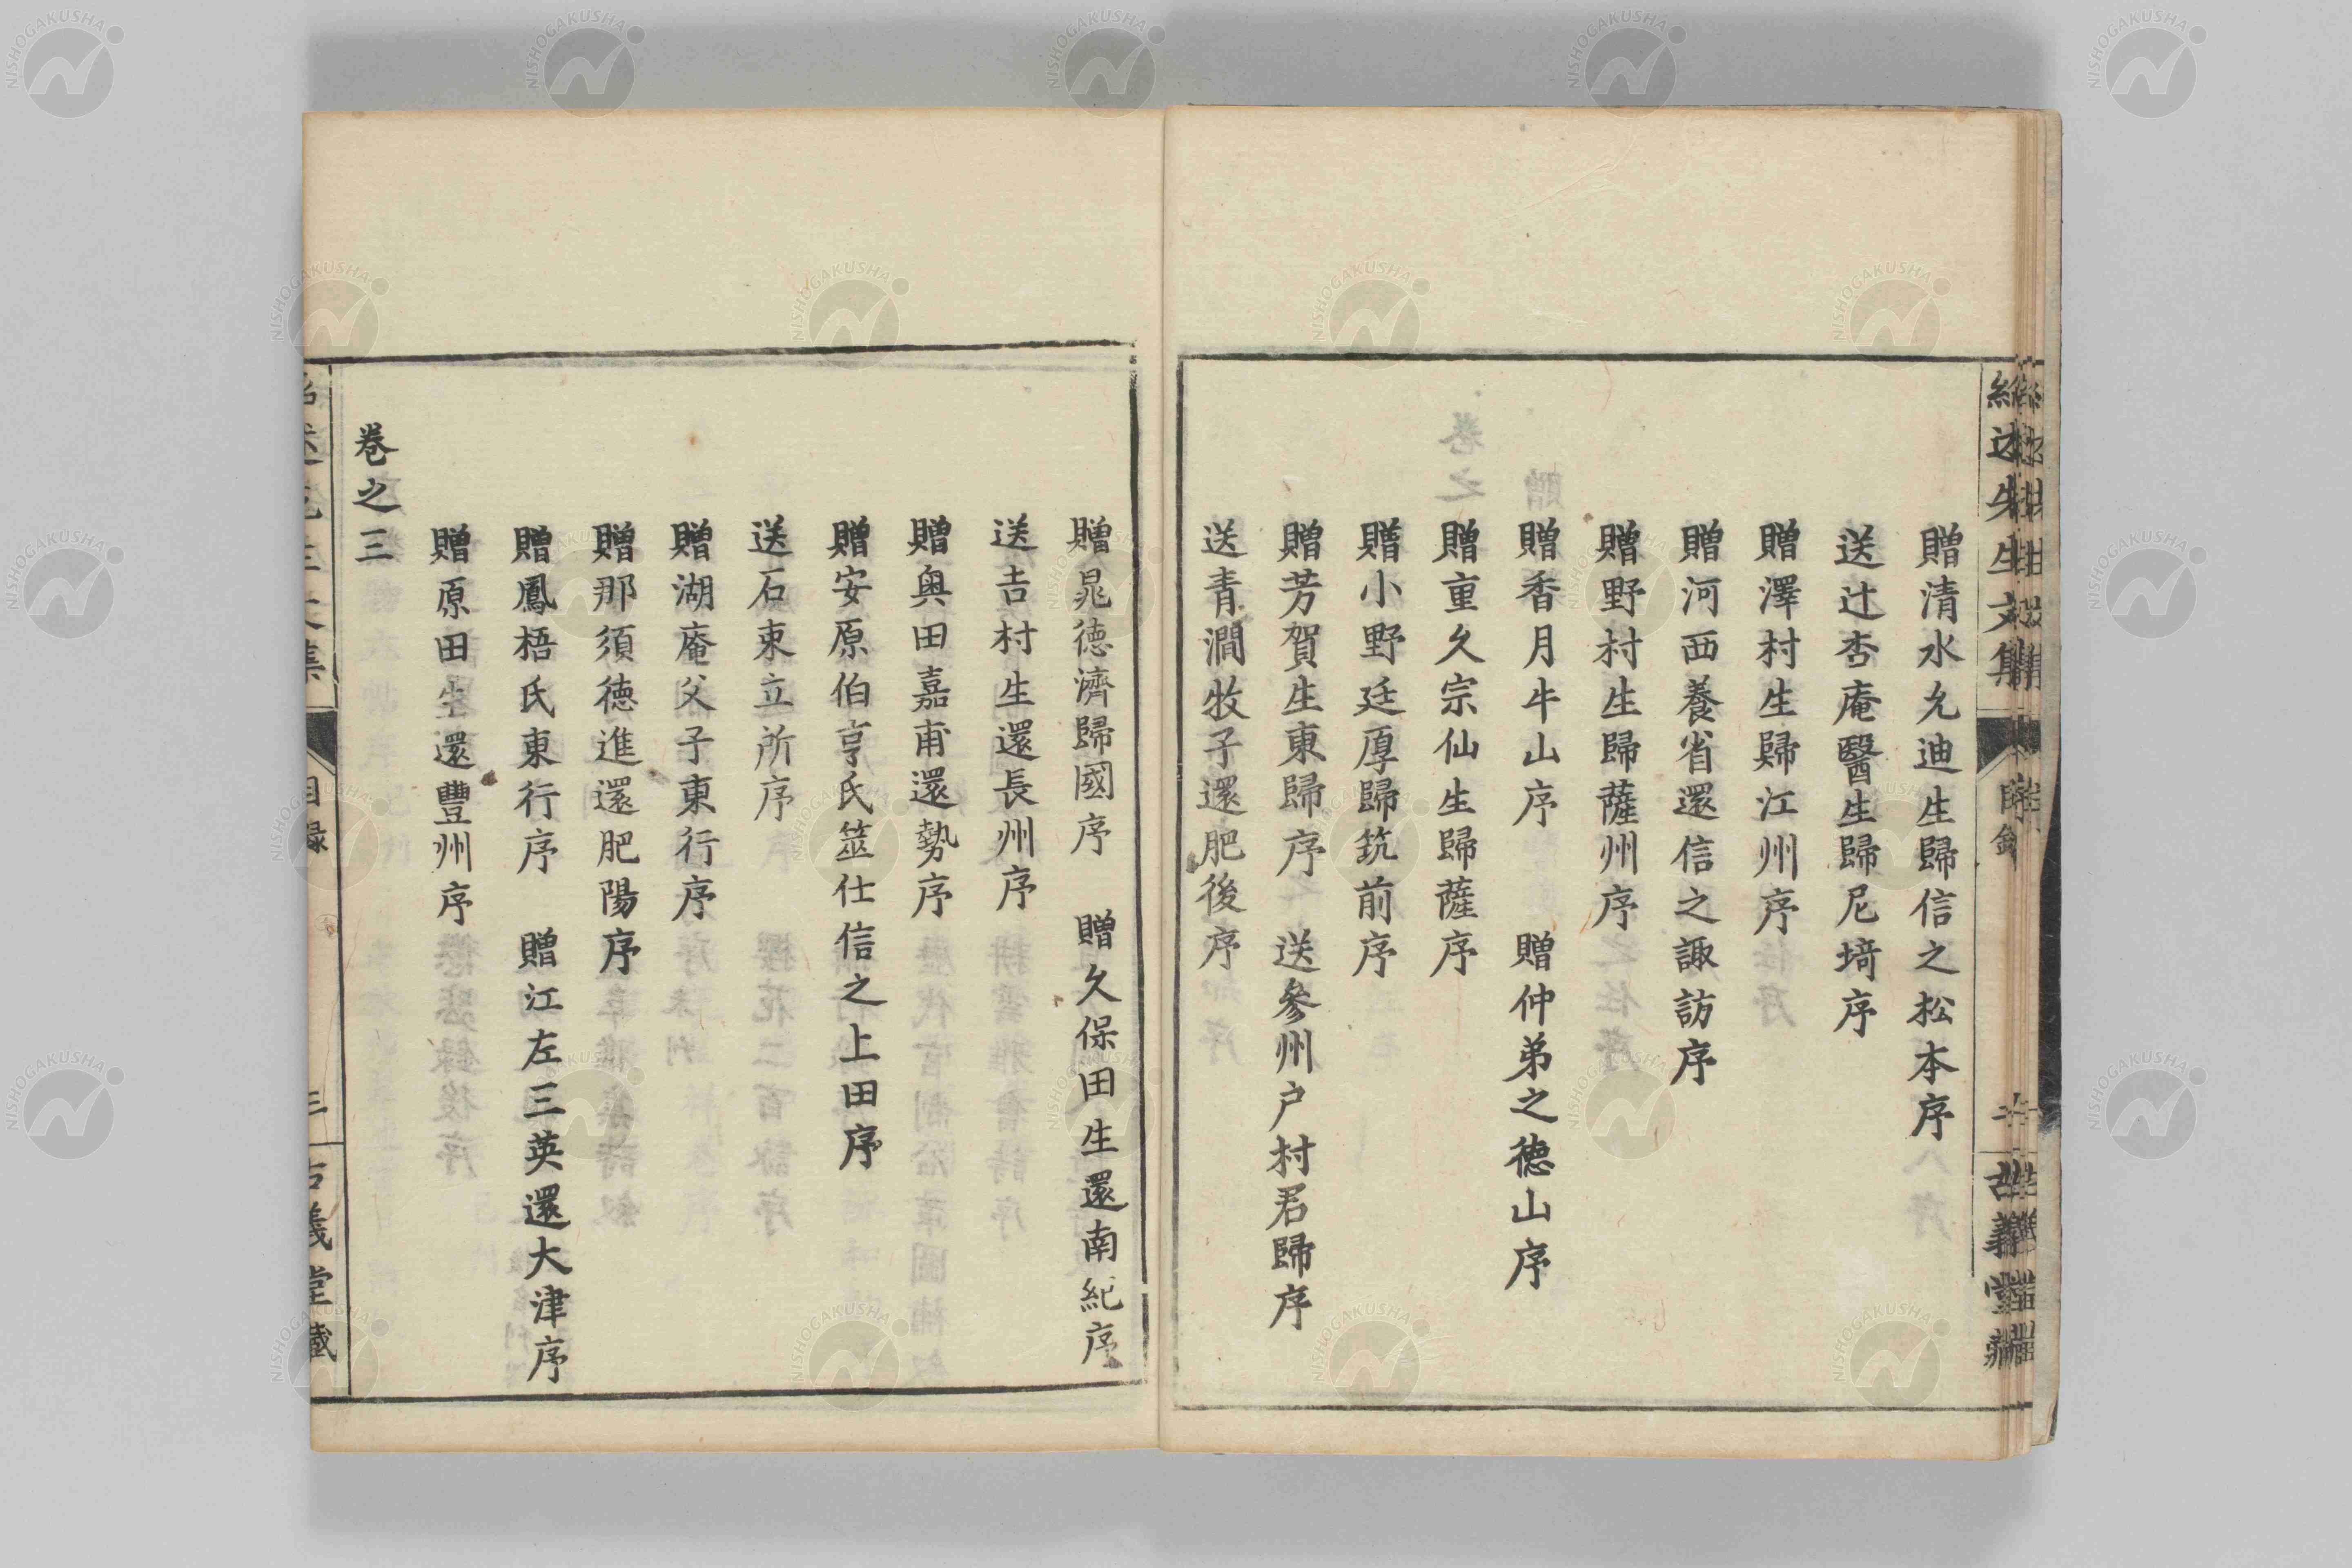 贈清水允迪生歸信之松本序
送辻杏庵醫生歸尼﨑序
贈澤村生歸江州序
贈河西養省還信之諏訪序
贈野村生歸薩州序
贈香月牛山序　贈仲弟之徳山序
贈重久宗仙生歸薩序
贈小野廷厚歸筑前序
贈芳賀生東歸序　送參州户村君歸序
送青澗牧子還肥後序
贈晁徳濟歸國序　贈久保田生還南紀序
送吉村生還長州序
贈奥田嘉甫還勢序
贈安原伯亨氏筮仕信之上田序
送石束立所序
贈湖庵父子東行序
贈那須徳進還肥陽序
贈鳳梧氏東行序　贈江左三英還大津序
贈原田生還豐州序
卷之三
目録
三
古義堂藏
NISHOGAKUSHA